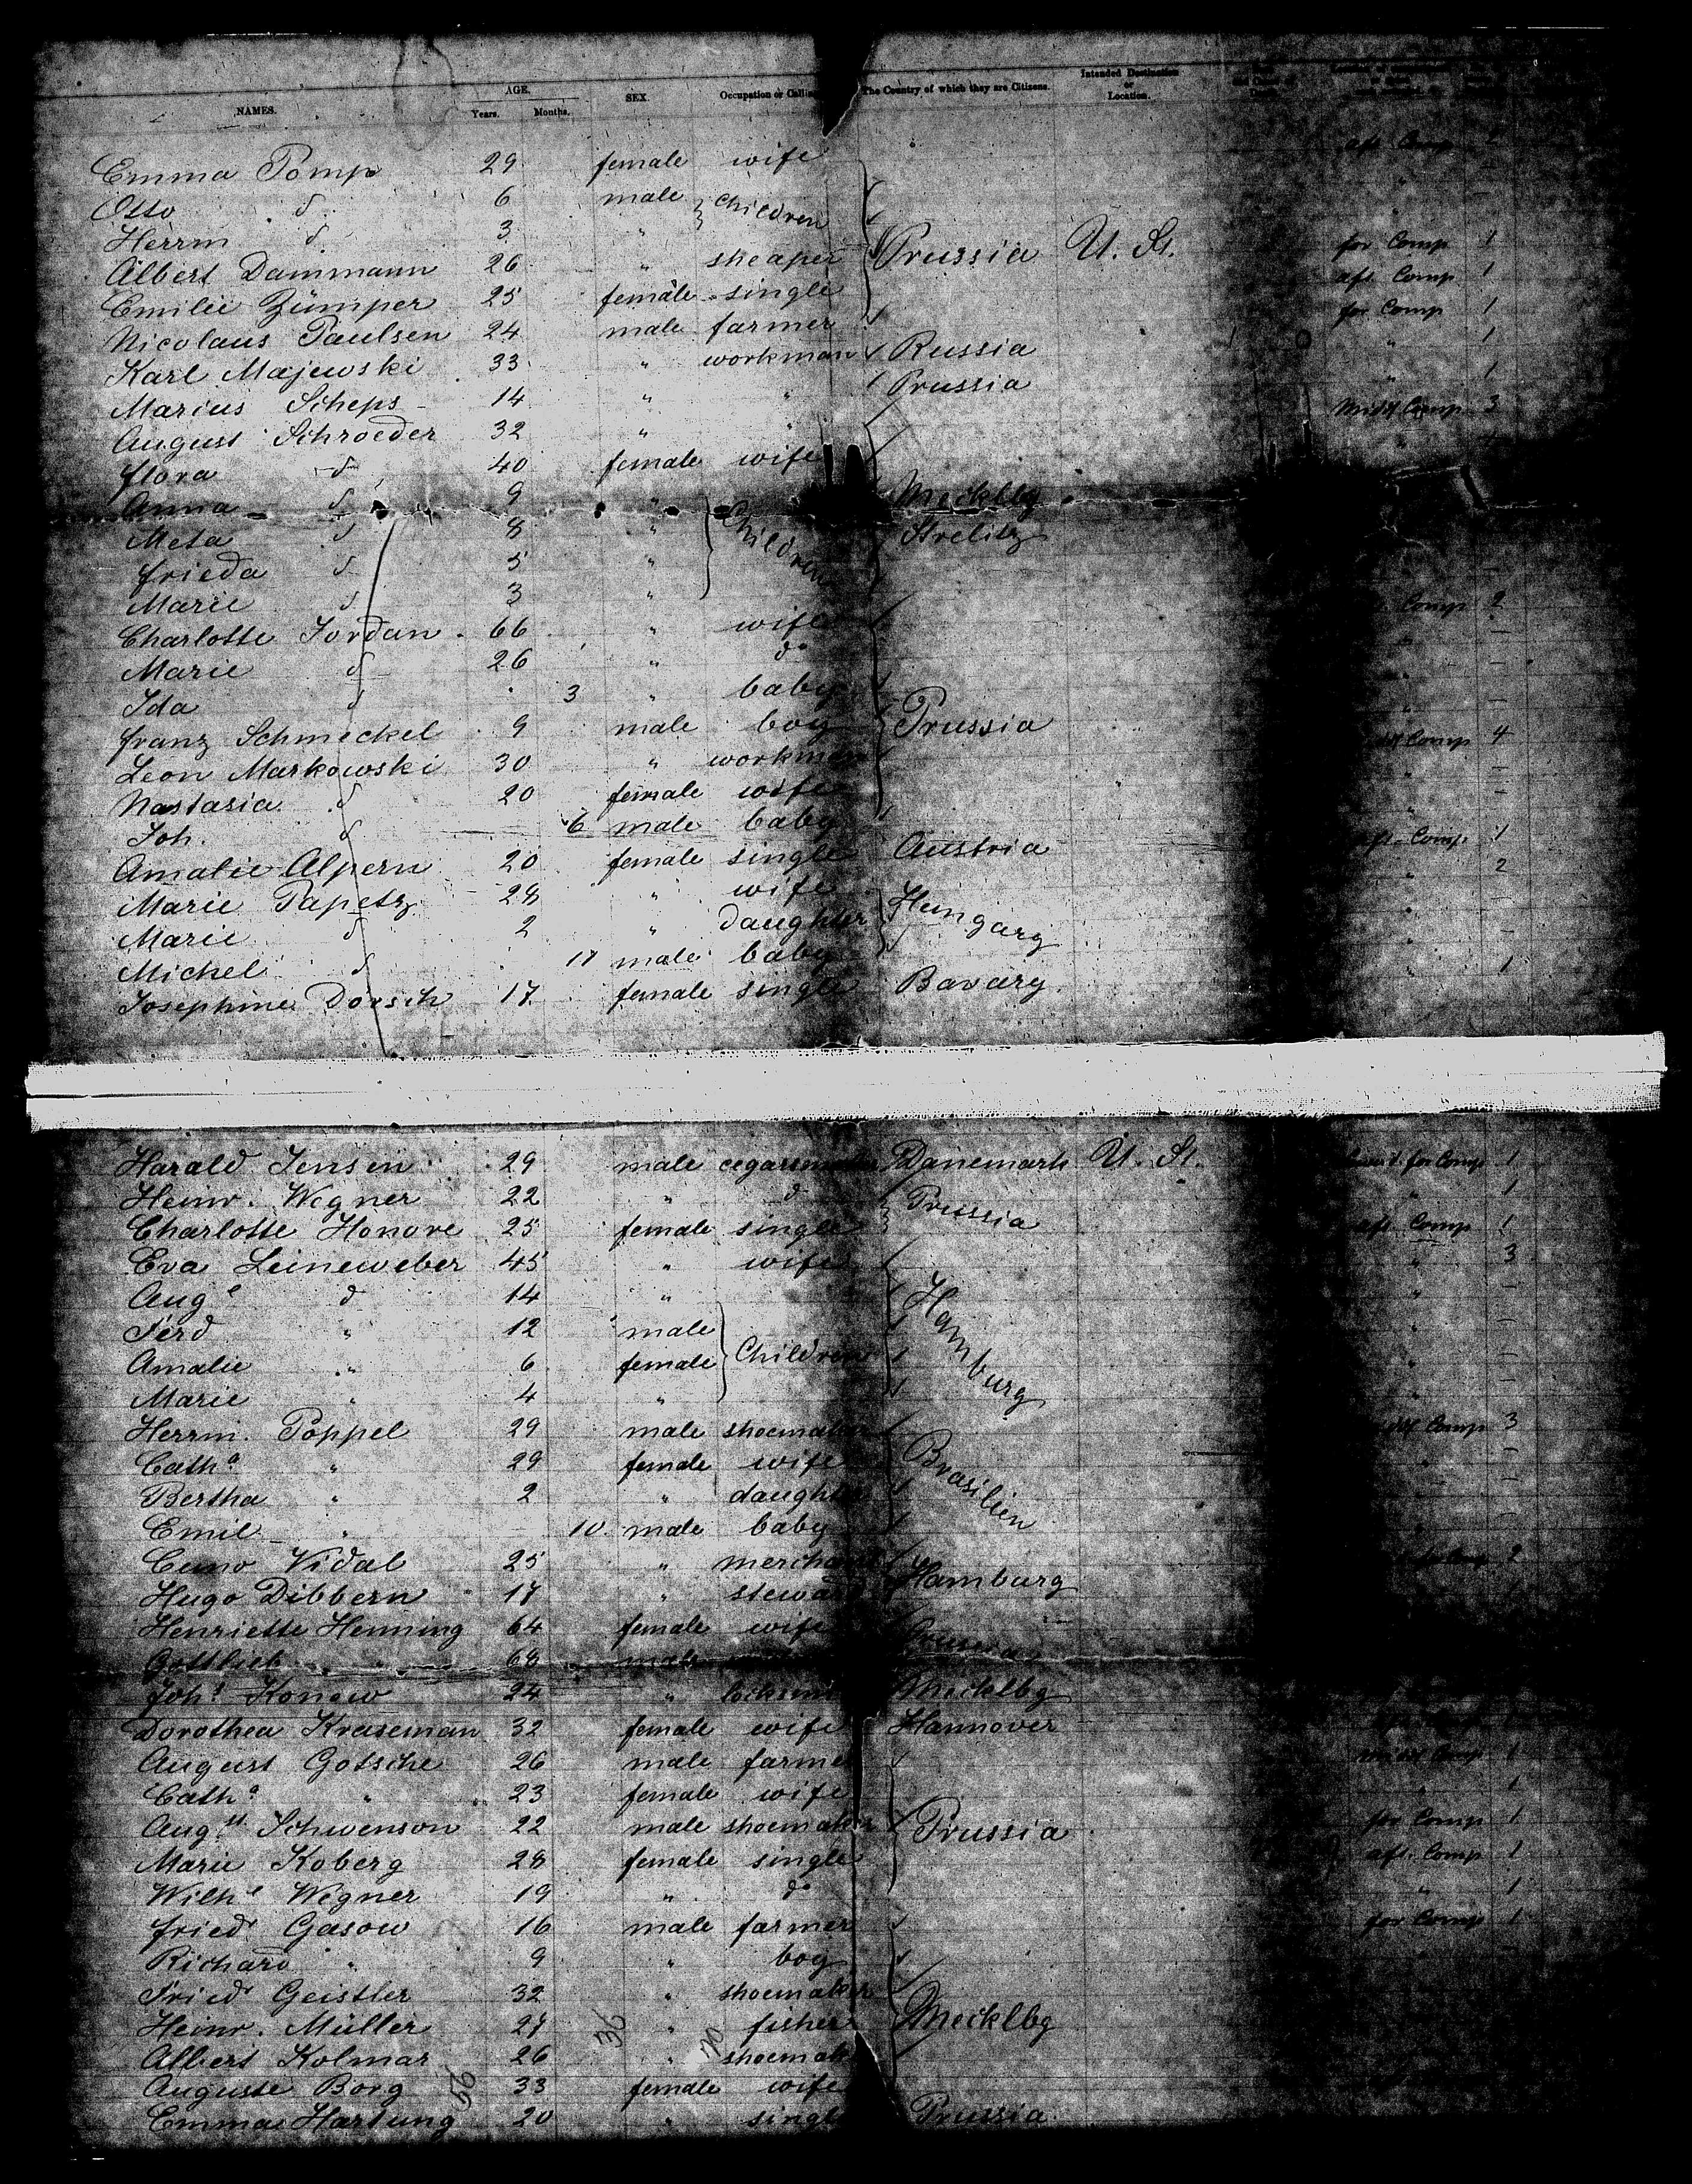 NAMES. AGE. Years. Months. SEX. Occupation or Calling The Country of which they are Citizens. Intended Destination or Location.
Emma Pomp 29 female wife aft Comp 2
Otto d 6 male children " –
Herrm d 3 " "
Albert Dammann 26 " sheaper Prussia U. St. for Comp 1
Emilie Zümper 25 female single aft Comp 1
Nicolaus Paulsen 24 male farmer for Comp 1
Karl Majewski 33 " workman Russia " 1
Marius Scheps 14 " " Prussia " 1
August Schroeder 32 " Midd Comp 3
Flora d 40 female wife "
Anna d 9 " Children Mecklbg
Meta d 8 " Strelitz
Frieda d 5 " –
Marie d 3 " –
Charlotte Jordan 66 " wife Comp 2
Marie d 26 " do " –
Ida d 3 " baby " –
Franz Schmeckel 9 male boy Prussia " –
Leon Markowski 30 " workman Comp 4
Nastasia d 20 female wife " –
Joh. d 6 male baby " –
Amalie Alpern 20 female single Austria aft Comp 1
Marie Papetz 28 " wife Hungary " 2
Marie d 2 " daughter "
Michel d 11 male baby " –
Josephine Dorsch 17 female single Bavary " 1
Harald Jensen 29 male cegarrmaker Danemark U. St. for Comp 1
Heinr. Wegner 22 " d Prussia " 1
Charlotte Honore 25 female single aft Comp 1
Eva Leineweber 45 " wife Hamburg " 3
Auge d 14 " " –
Ferd " 12 male Children " –
Amalie " 6 female " –
Marie " 4 " " –
Herrm. Poppel 29 male shoemaker Brasilien Comp 3
Catha " 29 female wife " –
Bertha " 2 " daughter –
Emil " 10 male baby " –
Cuno Vidal 25 " merchant Hamburg 2
Hugo Dibbern 17 " steward
Henriette Henning 64 female wife Prussia
Gottlieb " 68 male
Johs Konow 24 " locksmi Mecklbg
Dorothea Kraseman 32 female wife Hannover
August Gotsche 26 male farme midd Comp 1
Catha " 23 female wife " 1
Augst Schwenson 22 male shoemaker Prussia for Comp 1
Marie Koberg 28 female single aft Comp 1
Wilhe Wegner 19 " do " 1
Friedr Gasow 16 male farmer for Comp 1
Richard " 9 " boy
Friedr Geistler 32 " shoemaker
Heinr. Müller 27 36 " fisher Mecklbg
Albert Kolmar 26 " shoemak
Auguste Borg 56 33 female wife
Emma Hartung 20 " single Prussia